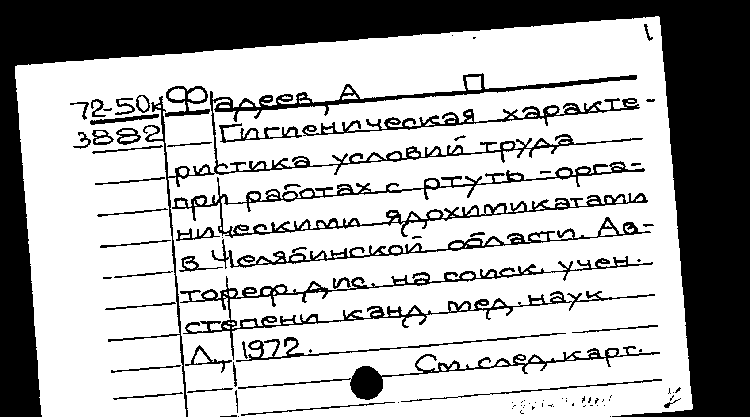 72-50к Фадеев, А П
3882 Гигиеническая характе-
ристика условий труда
при работах с ртуть-орга-
ническими ядохимикатами
в Челябинской области. Ав-
тореф. дис. на соиск. учен.
степени канд. мед. наук.
Л., 1972.
См. след. карт.